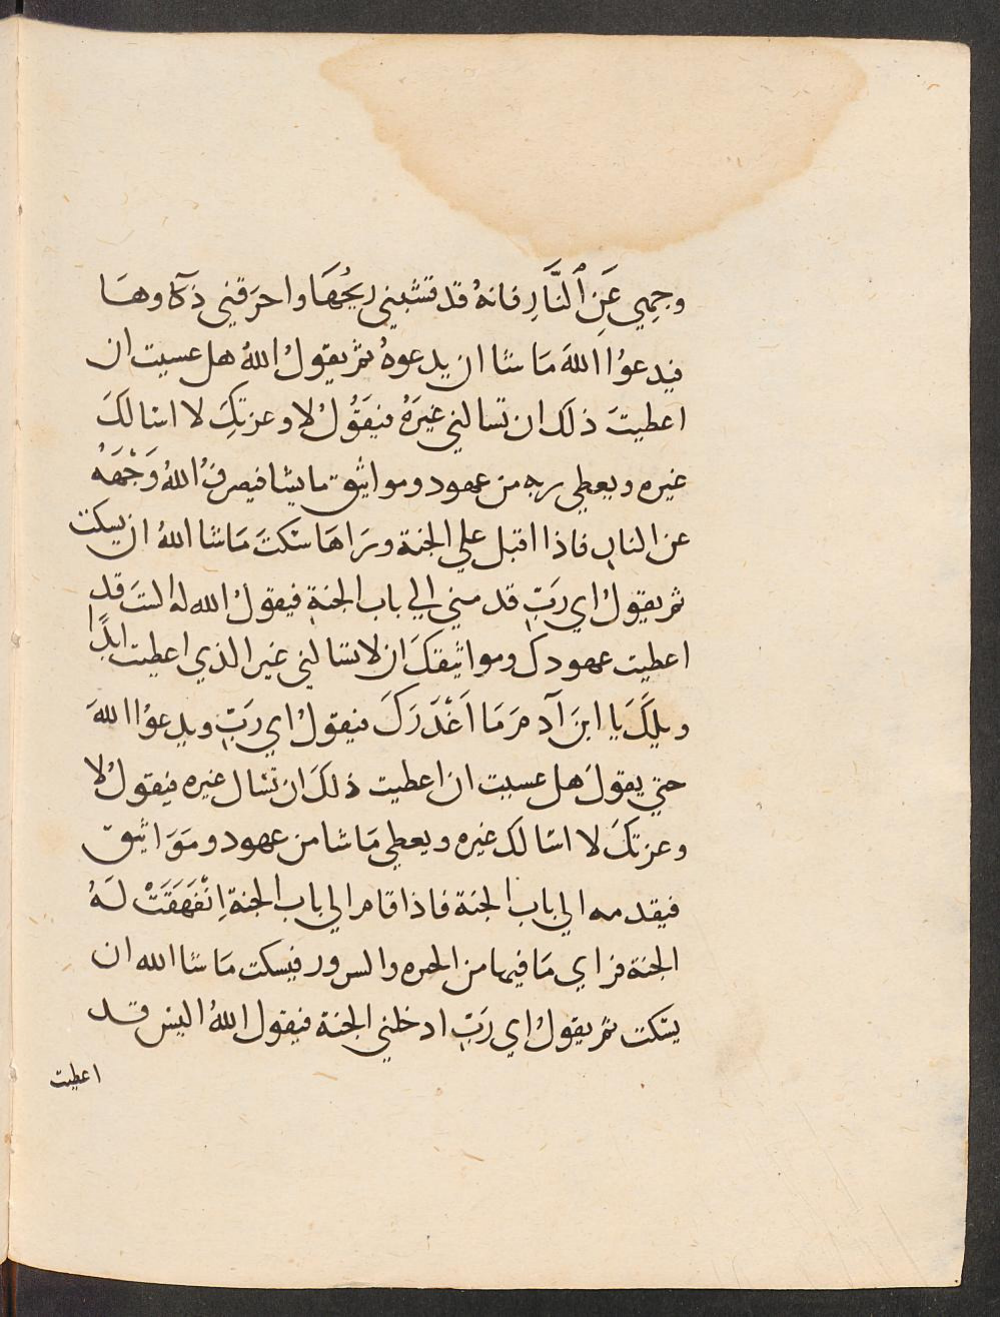 وجهي عَنِ ٱلنَّارِ فانهُ قد قشبني ريحُهَا واحرَقني ذكآوهَا
فيدعوُا اللهَ مَا شا ان يدعوهُ ثم يقولُ اللهُ هل عسيت ان
اعطيتَ ذلك ان تسالني غيرَهُ فيَقُولُ لا وعزتكِ لا اسالكَ
غيره ويعطي ربه من عهود ومواثيق ما يشا فيصرفُ اللهُ وَجْهَهُ
عن النار فاذا اقبل علي الجنة ورَاهَا سَكتَ مَا شا اللهُ ان يسكت
ثم يقولُ اي ربِّ قدمني الي باب الجنةِ فيقولُ الله له الستَ قد
اعطيت عهودك ومواثيقكَ ان لا تسالني غير الذي اعطيت ابدًا
ويلَكَ يا ابنَ آدمَ مَا اَغْدَرَكَ فيقولُ اي رَبِّ ويدعوُا اللهَ
حتي يقولَ هل عسيت ان اعطيت ذلكَ ان تسال غيره فيقولُ لا
وعزتكَ لا اسالك غيره ويعطي مَا شا من عهود ومَوَاثيق
فيقدمه الي باب الجنة فاذا قام الي باب الجنةِ اِنْفَهَقَتْ لَهُ
الجنة فراي مَا فيها من الحبره والسرور فيسكت مَا شا الله ان
يسكت ثم يقولُ اي رَبِّ ادخلني الجنة فيقول اللهُ اليس قد
اعطيت